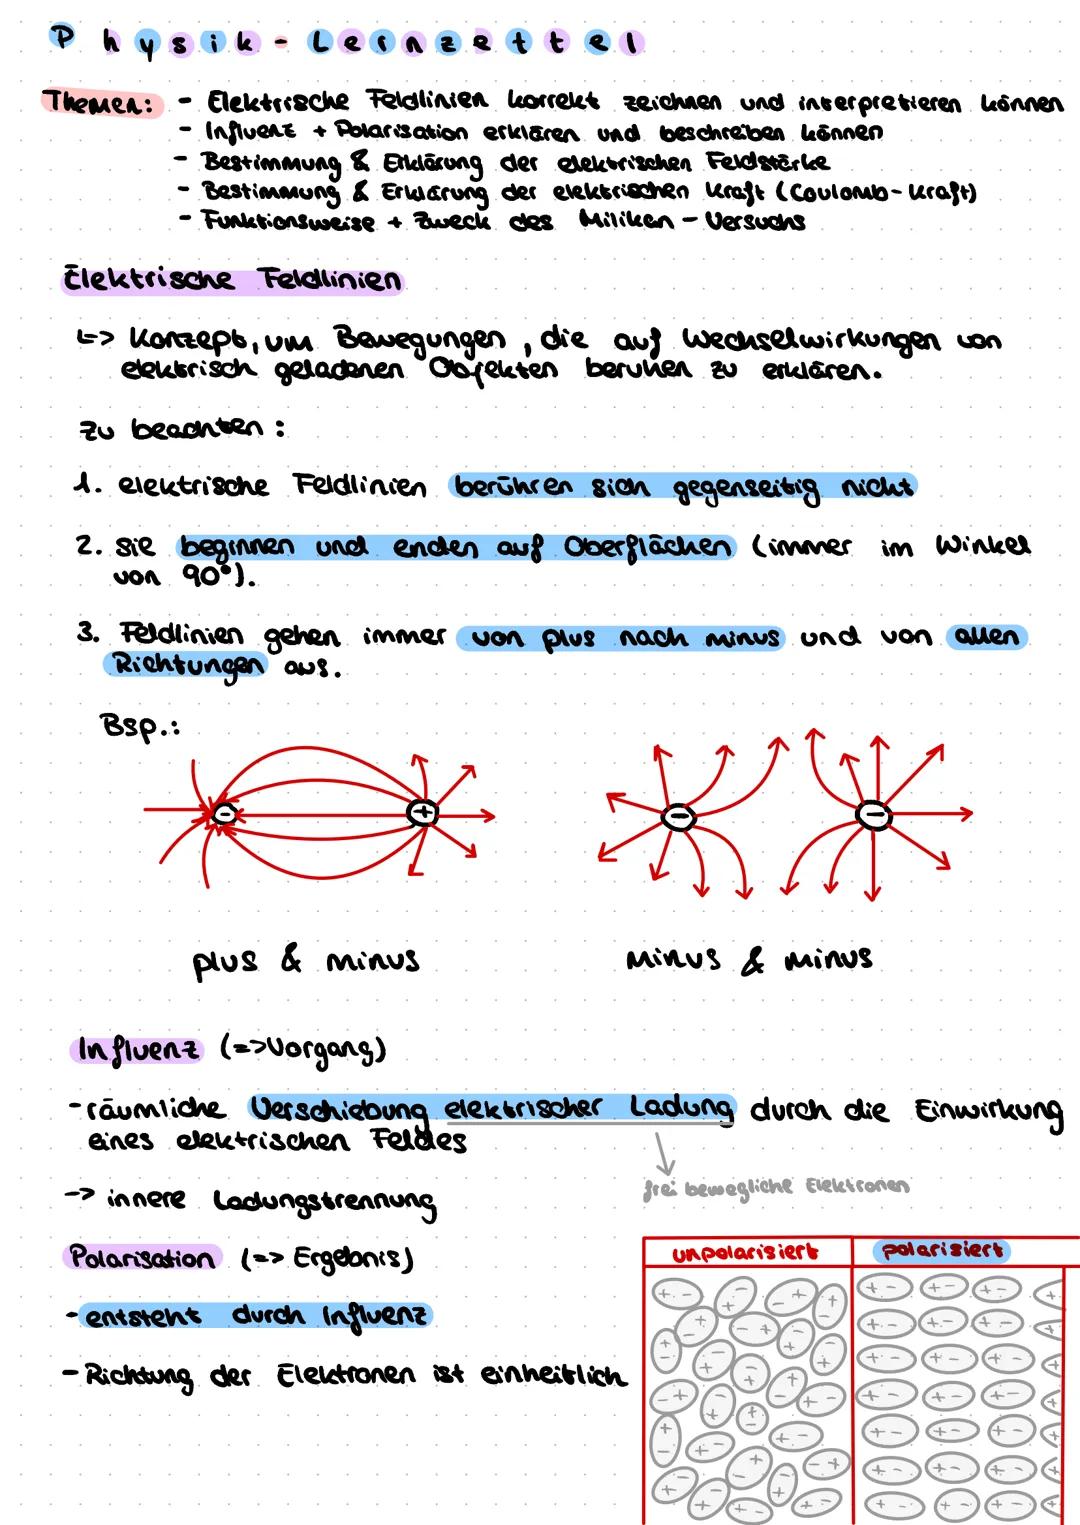 Physik-Lernzettel
Themen: - Elektrische Feldlinien korrekt zeichnen und interpretieren können
- Influenz + Polarisation erklären und beschreiben können
- Bestimmung & Erklärung der elektrischen Feldstärke
- Bestimmung & Erklärung der elektrischen Kraft (Coulomb-Kraft)
- Funktionsweise + Zweck des Miliken-Versuchs
Elektrische Feldlinien
↳> Konzept, um Bewegungen, die auf Wechselwirkungen von
elektrisch geladenen Objekten beruhen zu erklären.
Zu beachten:
1. elektrische Feldlinien berühren sich gegenseitig nicht
2. sie beginnen und enden auf Oberflächen (immer im Winkel
von 90°).
3. Feldlinien gehen immer von plus nach minus und von allen
Richtungen aus.
Bsp.:
- + - -
plus & minus minus & minus
Influenz (=>Vorgang)
-räumliche Verschiebung elektrischer Ladung durch die Einwirkung
eines elektrischen Feldes
frei bewegliche Elektronen
-> innere Ladungstrennung
Polarisation (=> Ergebnis)
unpolarisiert polarisiert
-entsteht durch Influenz
- Richtung der Elektronen ist einheitlich